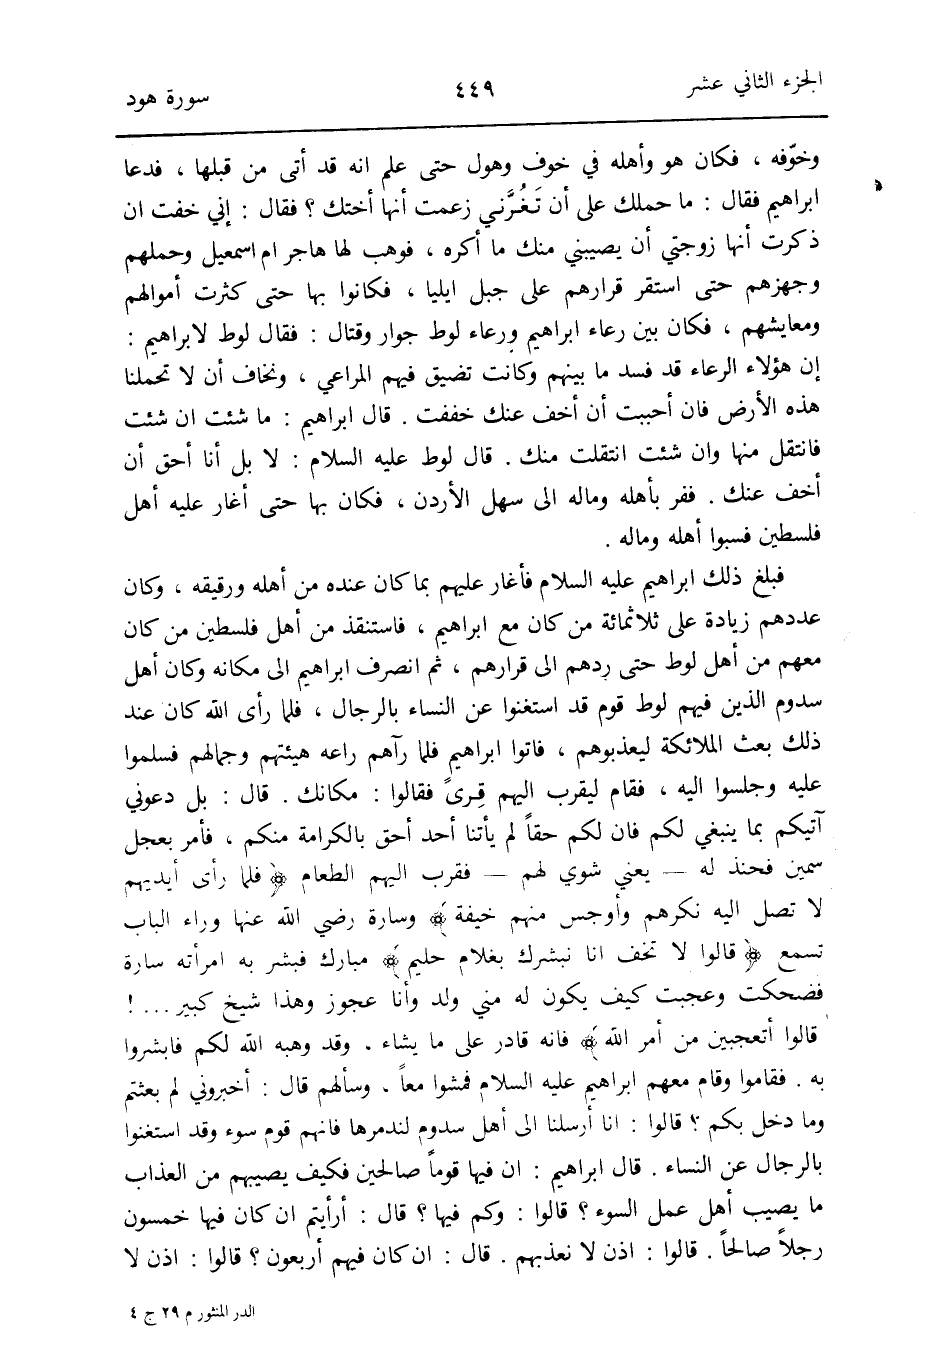 الجزء الثاني عشر ٤٤٩ سورة هود
وخوّفه ، فكان هو وأهله في خوف وهول حتى علم انه قد أتى من قبلها ، فدعا
ابراهيم فقال : ما حملك على أن تَغُرَّني زعمت أنها أختك ؟ فقال : إني خفت ان
ذكرت أنها زوجتي أن يصيبني منك ما أكره ، فوهب لها هاجر ام اسمعيل وحملهم
وجهزهم حتى استقر قرارهم على جبل ايليا ، فكانوا بها حتى كثرت أموالهم
ومعايشهم ، فكان بين رعاء ابراهيم ورعاء لوط جوار وقتال : فقال لوط لابراهيم :
إن هؤلاء الرعاء قد فسد ما بينهم وكانت تضيق فيهم المراعي ، ونخاف أن لا تحملنا
هذه الأرض فان أحببت أن أخف عنك خففت . قال ابراهيم : ما شئت ان شئت
فانتقل منها وان شئت انتقلت منك . قال لوط عليه السلام : لا بل أنا أحق أن
أخف عنك . ففر بأهله وماله الى سهل الأردن ، فكان بها حتى أغار عليه أهل
فلسطين فسبوا أهله وماله .
فبلغ ذلك ابراهيم عليه السلام فأغار عليهم بما كان عنده من أهله ورقيقه ، وكان
عددهم زيادة على ثلاثمائة من كان مع ابراهيم ، فاستنقذ من أهل فلسطين من كان
معهم من أهل لوط حتى ردهم الى قرارهم ، ثم انصرف ابراهيم الى مكانه وكان أهل
سدوم الذين فيهم لوط قوم قد استغنوا عن النساء بالرجال ، فلما رأى الله كان عند
ذلك بعث الملائكة ليعذبوهم ، فاتوا ابراهيم فلما رآهم راعه هيئتهم وجمالهم فسلموا
عليه وجلسوا اليه ، فقام ليقرب اليهم قِرىً فقالوا : مكانك . قال : بل دعوني
آتيكم بما ينبغي لكم فان لكم حقاً لم يأتنا أحد أحق بالكرامة منكم ، فأمر بعجل
سمين فحنذ له — يعني شوي لهم — فقرب اليهم الطعام ﴿ فلما رأى أيديهم
لا تصل اليه نكرهم وأوجس منهم خيفة ﴾ وسارة رضي الله عنها وراء الباب
تسمع ﴿ قالوا لا تخف انا نبشرك بغلام حليم ﴾ مبارك فبشر به امرأته سارة
فضحكت وعجبت كيف يكون له مني ولد وأنا عجوز وهذا شيخ كبير ... !
قالوا أتعجبين من أمر الله ﴾ فانه قادر على ما يشاء . وقد وهبه الله لكم فابشروا
به . فقاموا وقام معهم ابراهيم عليه السلام فمشوا معاً . وسألهم قال : أخبروني لم بعثتم
وما دخل بكم ؟ قالوا : انا أرسلنا الى أهل سدوم لندمرها فانهم قوم سوء وقد استغنوا
بالرجال عن النساء . قال ابراهيم : ان فيها قوماً صالحين فكيف يصيبهم من العذاب
ما يصيب أهل عمل السوء ؟ قالوا : وكم فيها ؟ قال : أرأيتم ان كان فيها خمسون
رجلاً صالحاً . قالوا : اذن لا نعذبهم . قال : ان كان فيهم أربعون ؟ قالوا : اذن لا
الدر المنثور م ٢٩ ج ٤